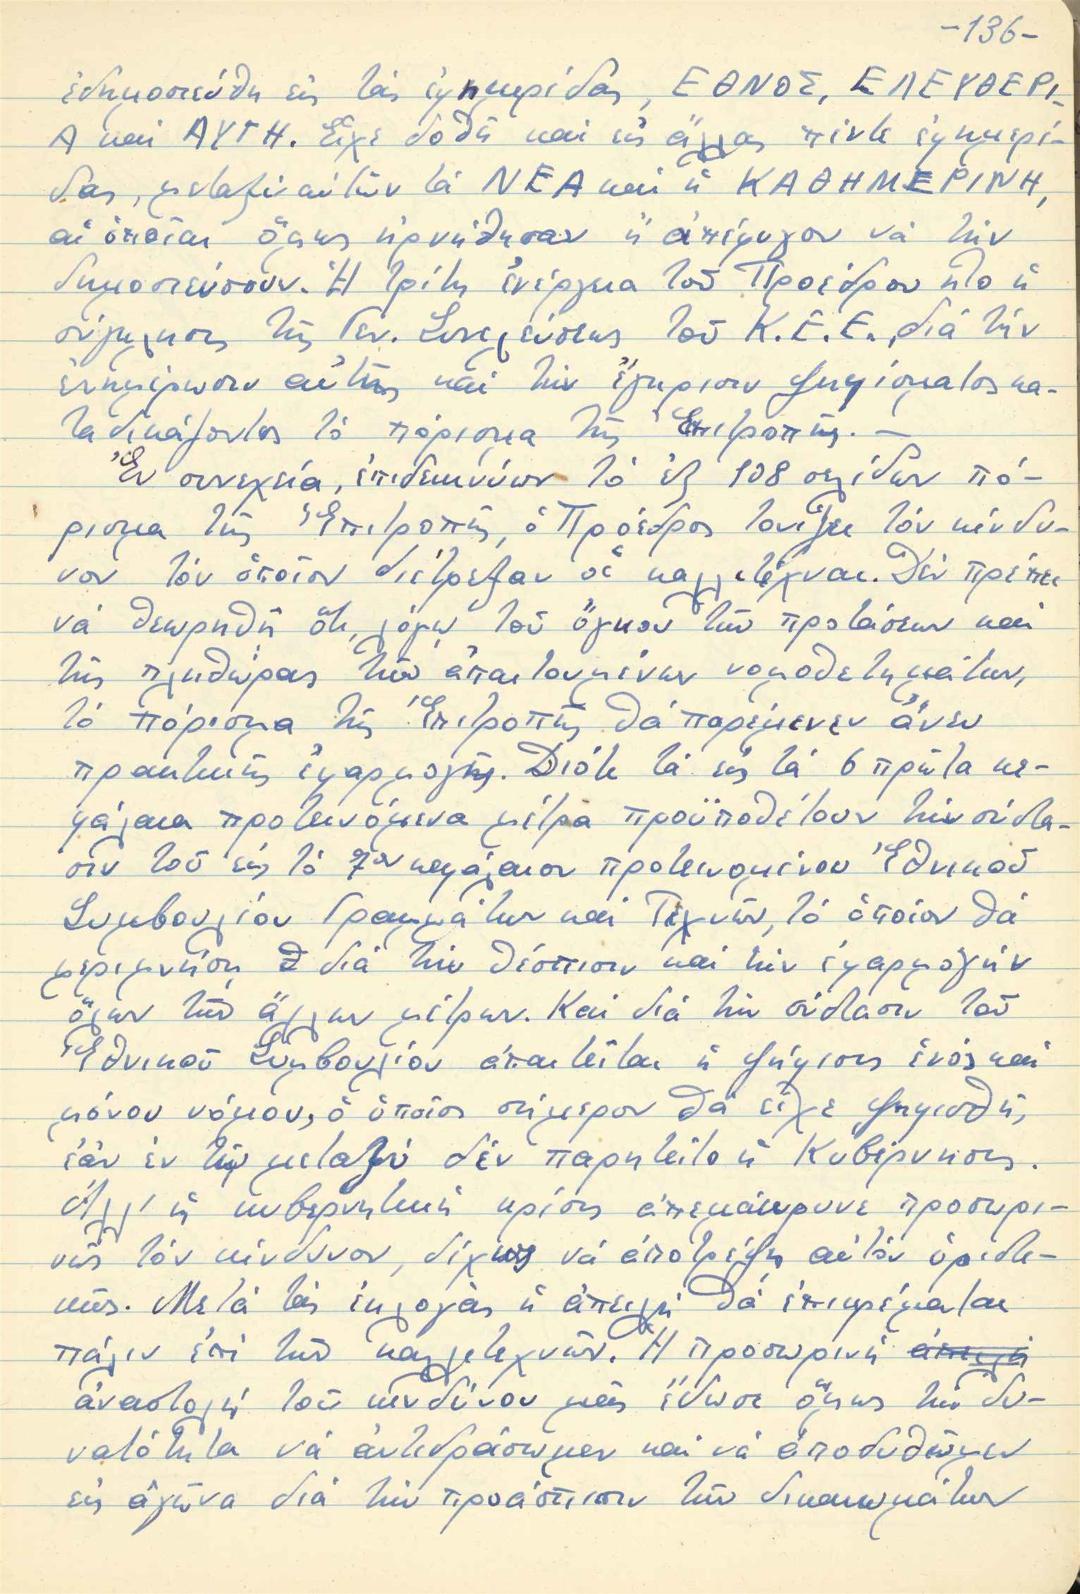 -136-
ἐδημοσιεύθη εἰς τάς ἐφημερίδας, ΕΘΝΟΣ, ΕΛΕΥΘΕΡΙ-
Α καί ΑΥΓΗ. Εἶχε δοθῆ καί εἰς ἄλλας πέντε ἐφημερί-
δας, μεταξύ αὐτῶν τά ΝΕΑ καί ἡ ΚΑΘΗΜΕΡΙΝΗ,
αἱ ὁποῖαι ὅμως ἠρνήθησαν ἤ ἀπέφυγον νά τήν
δημοσιεύσουν. Ἡ τρίτη ἐνέργεια τοῦ Προέδρου ἦτο ἡ
σύγκλησις τῆς Γεν. Συνελεύσεως τοῦ Κ.Ε.Ε., διά τήν
ἐνημέρωσιν αὐτῆς καί τήν ἔγκρισιν ψηφίσματος κα-
ταδικάζοντος τό πόρισμα τῆς Ἐπιτροπῆς. —
Ἐν συνεχείᾳ, ἐπιδεικνύων τό ἐξ 108 σελίδων πό-
ρισμα τῆς Ἐπιτροπῆς, ὁ Πρόεδρος τονίζει τόν κίνδυ-
νον τόν ὁποῖον διέτρεξαν οἱ καλλιτέχναι. Δέν πρέπει
νά θεωρηθῆ ὅτι, λόγῳ τοῦ ὄγκου τῶν προτάσεων καί
τῆς πληθώρας τῶν ἀπαιτουμένων νομοθετημάτων,
τό πόρισμα τῆς Ἐπιτροπῆς θά παρέμενεν ἄνευ
πρακτικῆς ἐφαρμογῆς. Διότι τά εἰς τά 6 πρῶτα κε-
φάλαια προτεινόμενα μέτρα προϋποθέτουν τήν σύστα-
σιν τοῦ εἰς τό 7ον κεφάλαιον προτεινομένου Ἐθνικοῦ
Συμβουλίου Γραμμάτων καί Τεχνῶν, τό ὁποῖον θά
μεριμνήσῃ διά τήν θέσπισιν καί τήν ἐφαρμογήν
ὅλων τῶν ἄλλων μέτρων. Καί διά τήν σύστασιν τοῦ
Ἐθνικοῦ Συμβουλίου ἀπαιτεῖται ἡ ψήφισις ἑνός καί
μόνου νόμου, ὁ ὁποῖος σήμερον θά εἶχε ψηφισθῆ,
ἐάν ἐν τῷ μεταξύ δέν παρητεῖτο ἡ Κυβέρνησις.
Ἀλλ' ἡ κυβερνητική κρίσις ἀπεμάκρυνε προσωρι-
νῶς τόν κίνδυνον, δίχως νά ἀποτρέψῃ αὐτόν ὁριστι-
κῶς. Μετά τάς ἐκλογάς ἡ ἀπειλή θά ἐπικρέμαται
πάλιν ἐπί τῶν καλλιτεχνῶν. Ἡ προσωρινή ἀπειλή
ἀναστολή τοῦ κινδύνου μᾶς ἔδωσε ὅμως τήν δυ-
νατότητα νά ἀντιδράσωμεν καί νά ἀποδυθῶμεν
εἰς ἀγῶνα διά τήν προάσπισιν τῶν δικαιωμάτων